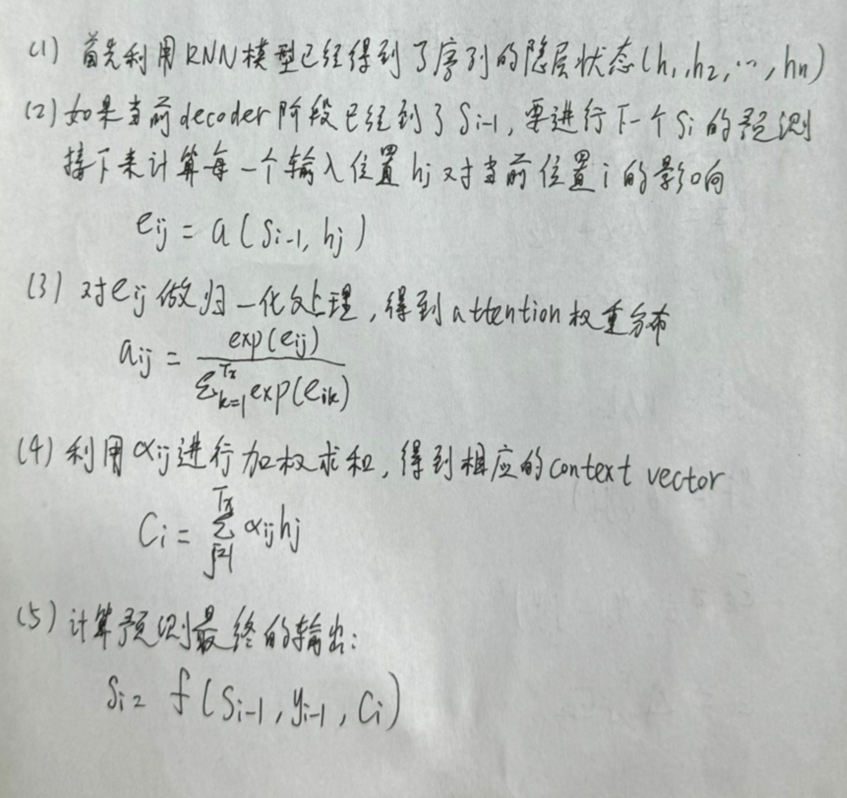 (1) 首先利用RNN模型已经得到了序列的隐层状态(h₁,h₂,…,hn)
(2)如果当前decoder阶段已经到了Si-1,要进行下一个Si的预测
接下来计算每一个输入位置hj对当前位置i的影响
eij = a(Si-1, hj)
(3) 对eij做归一化处理,得到attention权重分布
aij = exp(eij) / Σ_{k=1}^{Tx} exp(eik)
(4) 利用αij进行加权求和,得到相应的context vector
Ci = Σ_{j=1}^{Tx} αijhj
(5) 计算预测最终的输出:
Si = f(Si-1, yi-1, Ci)